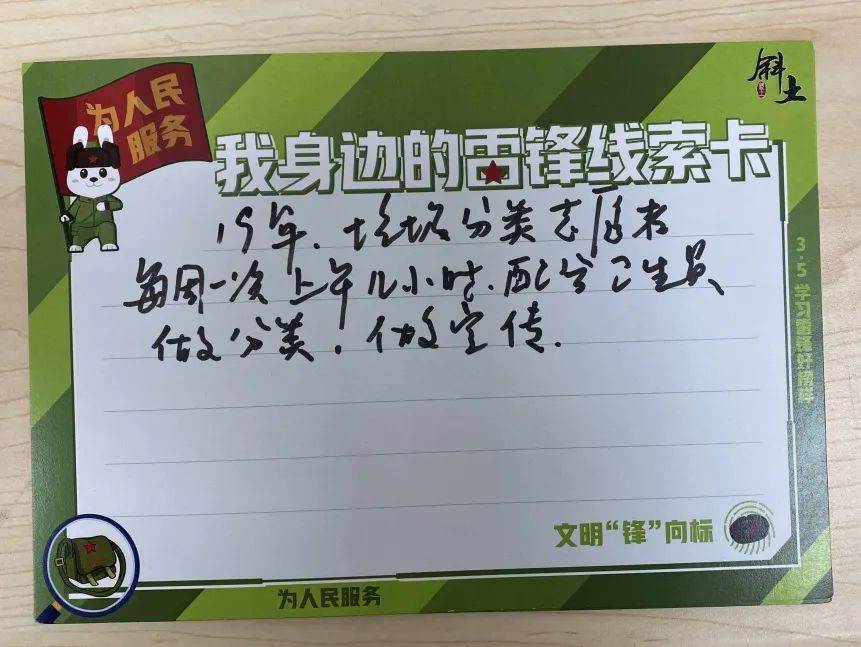 为人民
服务
斜土
我身边的雷锋线索卡
19年.垃圾分类志愿者
每周一次上午几小时.配合卫生员
做分类.做宣传.
3·5学习雷锋好榜样
文明“锋”向标
为人民服务